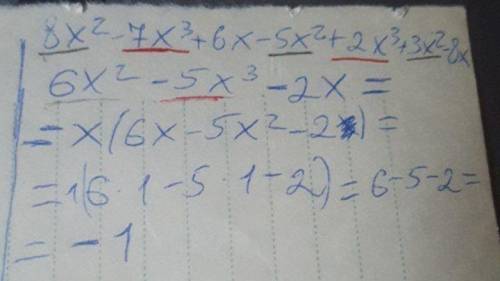 8x² - 7x³ + 6x - 5x² + 2x³ + 3x² - 8x
6x² - 5x³ - 2x =
= x(6x - 5x² - 2) =
= 1(6 · 1 - 5 · 1 - 2) = 6 - 5 - 2 =
= - 1